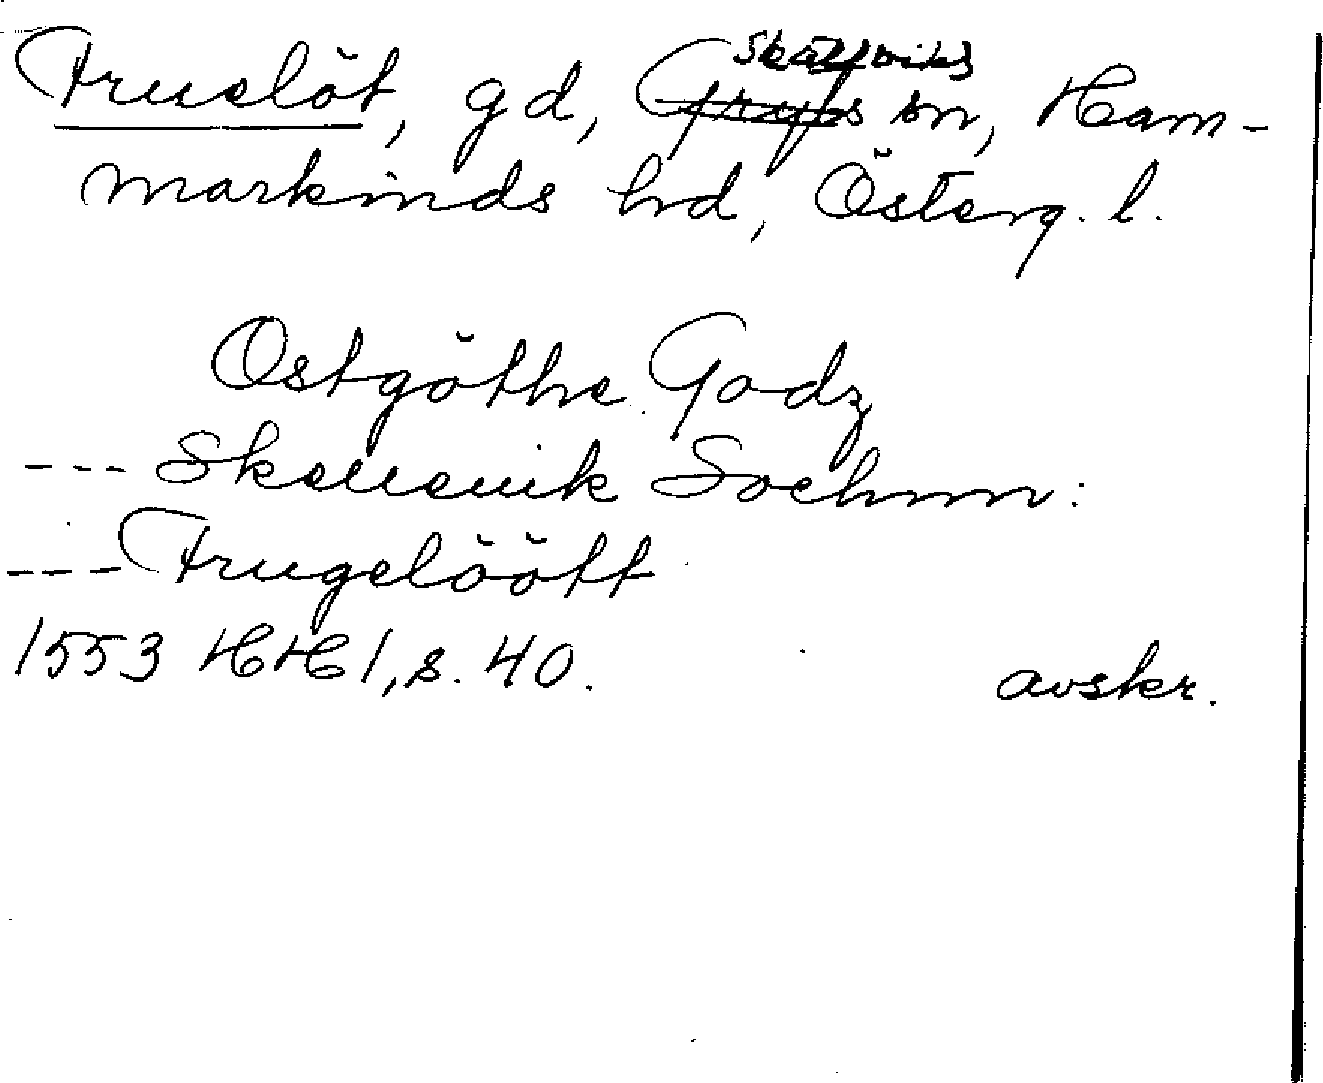 Fruelöt, gd, Skällviks sn, Ham-
markinds hrd, Österg. l.
Ostgöthe Godz
--- Skelleuik Sochnn:
--- Frugelöött
1553 HH 1, s. 40.
avskr.